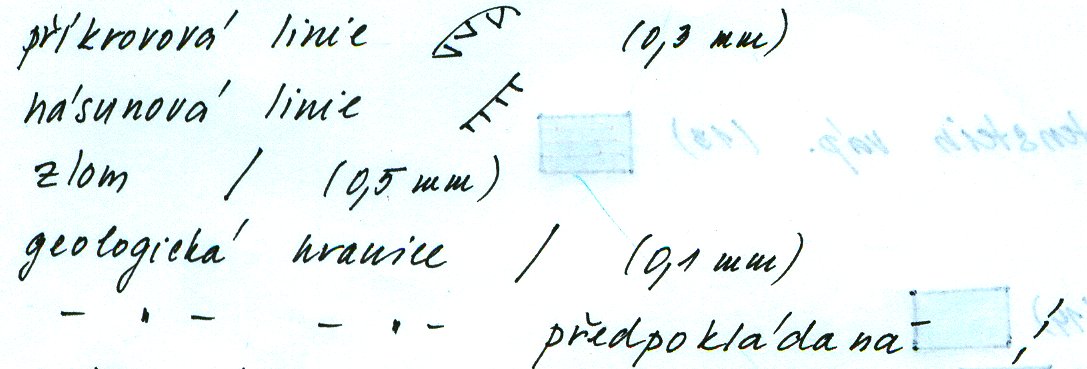 příkrovová linie (0,3 mm)
násunová linie
zlom / (0,5 mm)
geologická hranice / (0,1 mm)
- " - - " - předpokládaná